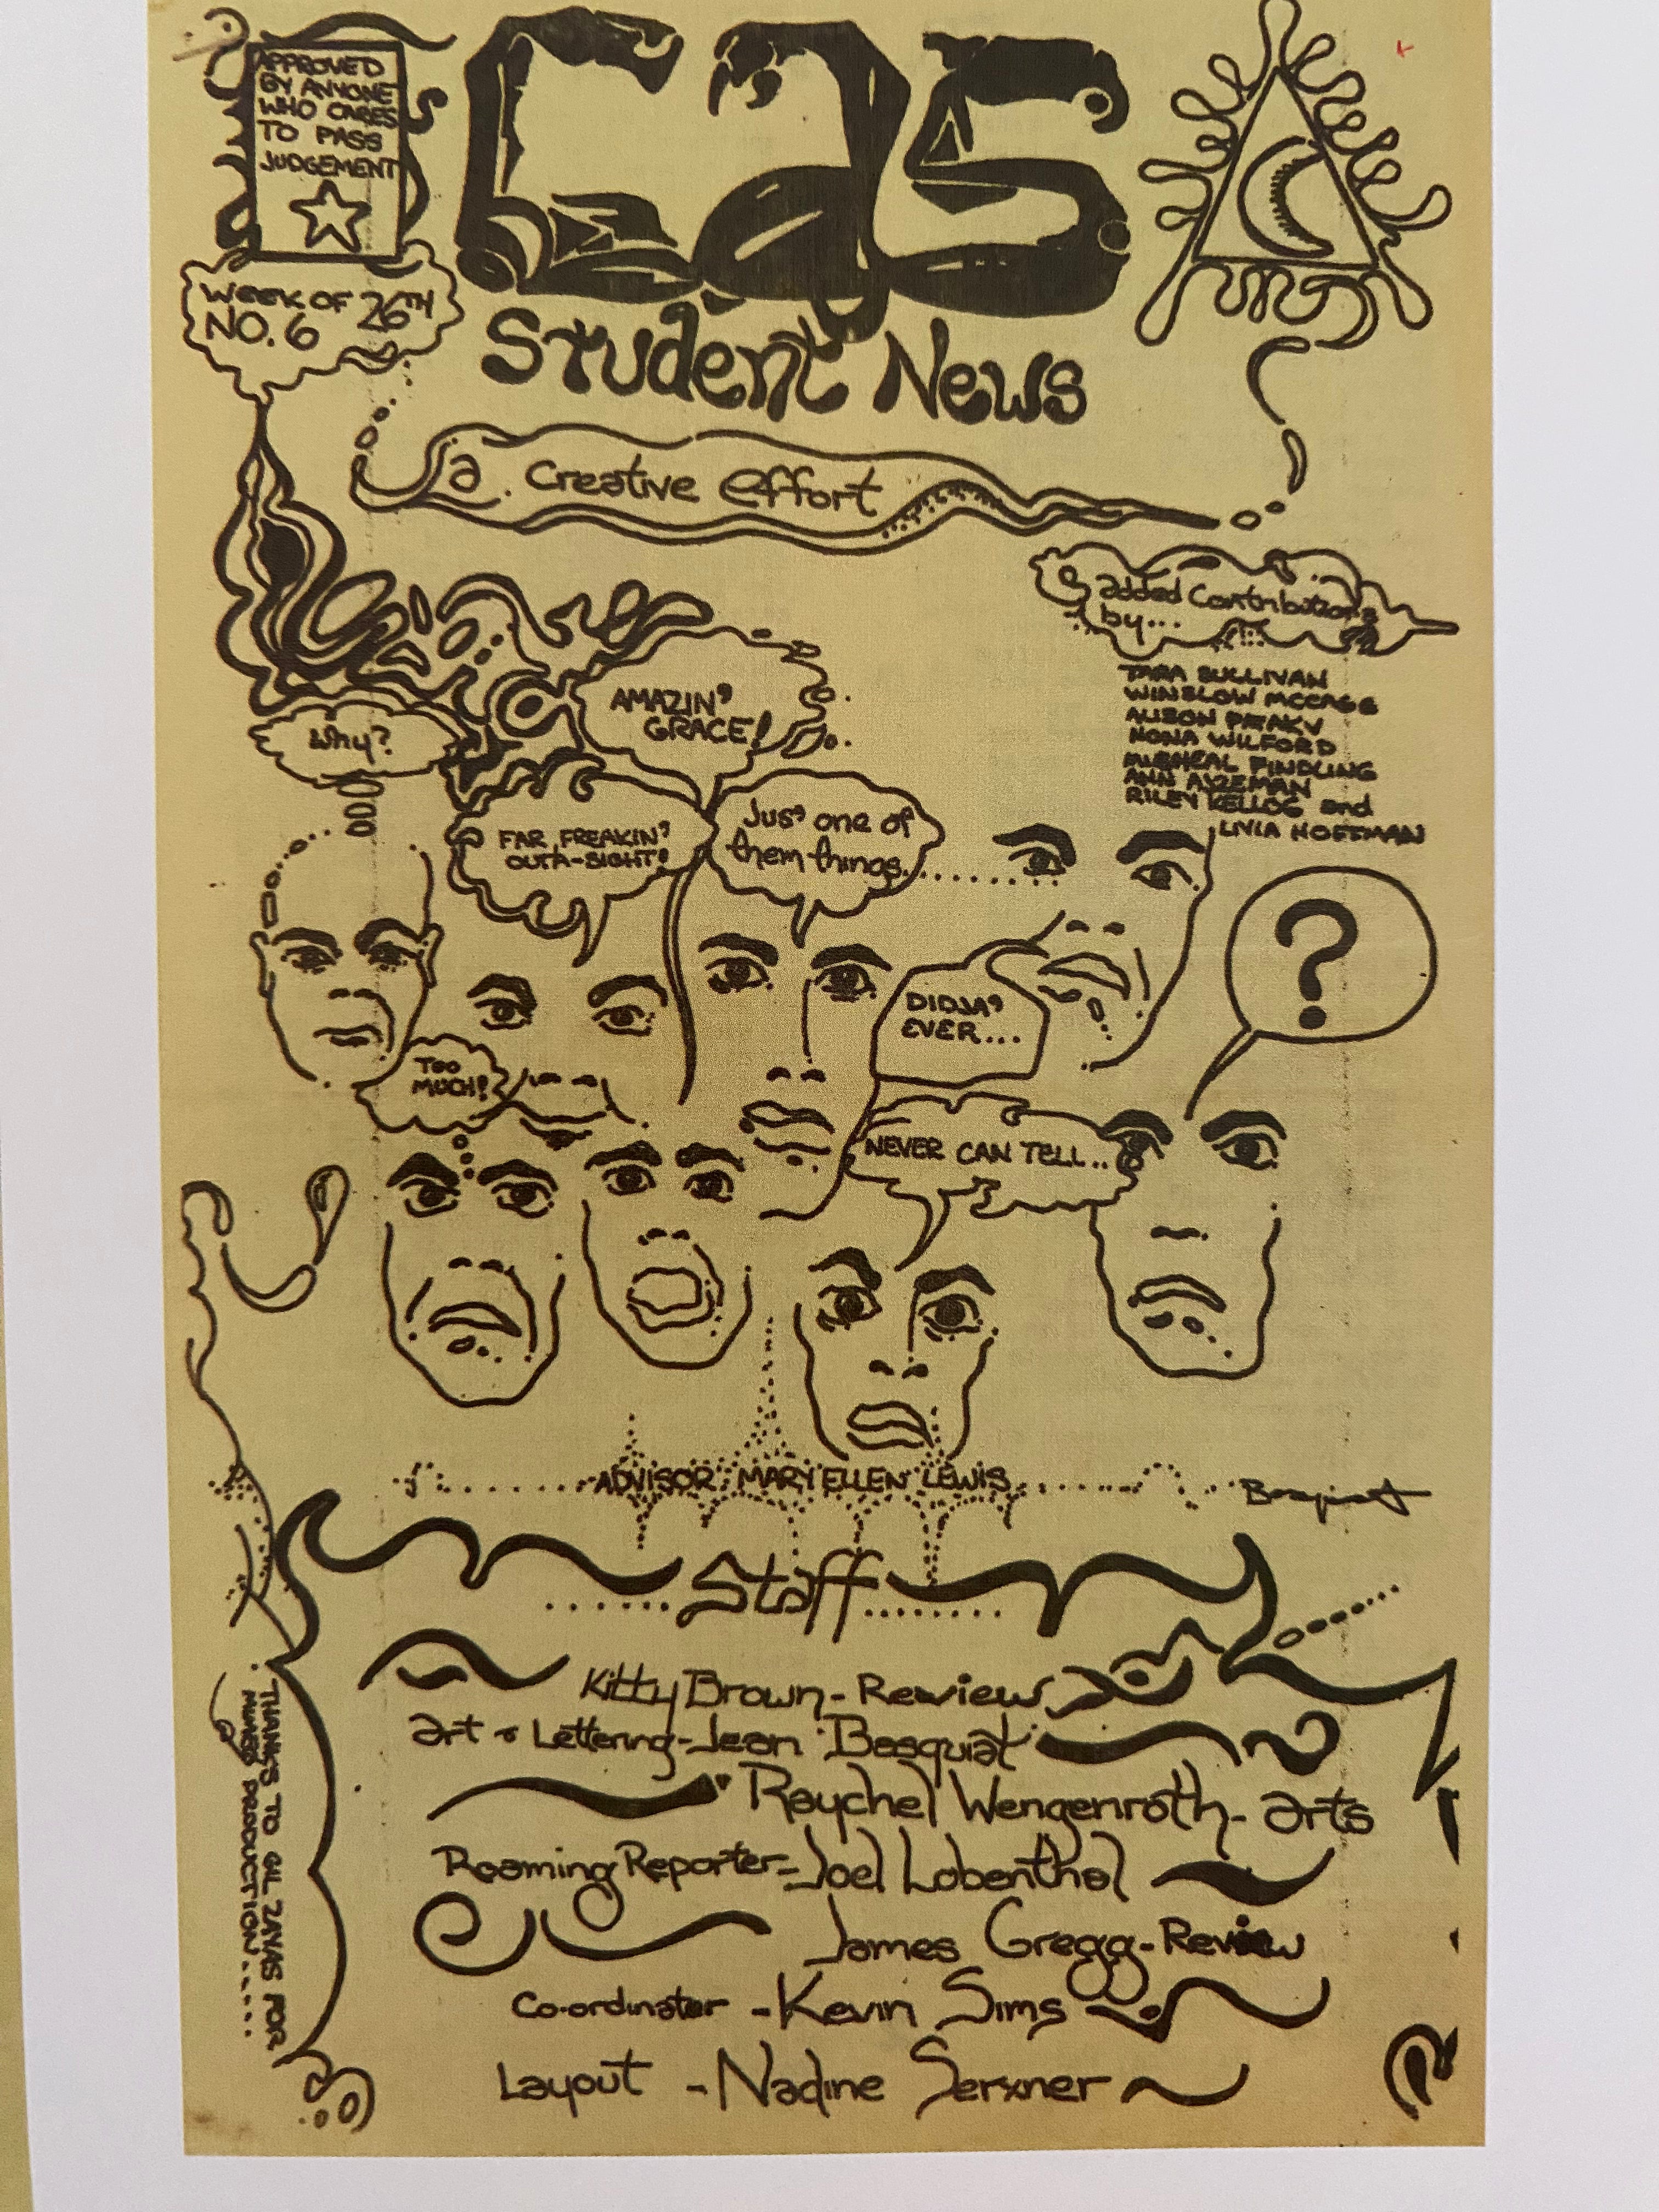 APPROVED
BY ANYONE
WHO CARES
TO PASS
JUDGEMENT
Cas
WEEK OF 26TH
NO. 6
Student News
a. Creative Effort
added Contributions
by...
TARA SULLIVAN
WINSLOW
ALISON
NONA WILFORD
FINDLING
ANN
RILEY KELLOG and
LIVIA HOFFMAN
AMAZIN'
GRACE!
Why?
FAR FREAKIN'
OUTA-SIGHT!
Jus' one of
them things.
?
DIDJA'
EVER...
TOO
MUCH!
NEVER CAN TELL..
ADVISOR MARY ELLEN LEWIS
Basquiat
Staff
Kitty Brown - Reviews
Art & Lettering - Jean Basquiat
Raychel Wengenroth - arts
Roaming Reporter - Joel Lobenthal
James Gregg - Review
Co-ordinator - Kevin Sims
Layout - Nadine Serxner
THANKS TO GIL ZAYAS FOR
PRODUCTION.....